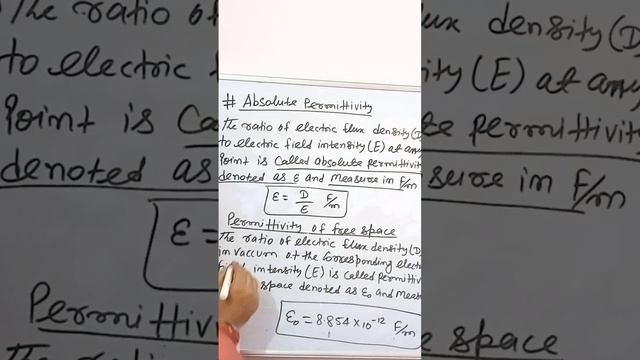 # Absolute Permittivity
The ratio of electric flux density (D
to electric field intensity (E) at any
Point is Called absolute permittivi
denoted as ε and measure in F/m
ε = D/E F/m
Permittivity of free space
The ratio of electric flux density (D
in vaccum at the Corresponding elect
intensity (E) is called Permittiv
space denoted as ε₀ and meas
ε₀ = 8.854 × 10⁻¹² F/m